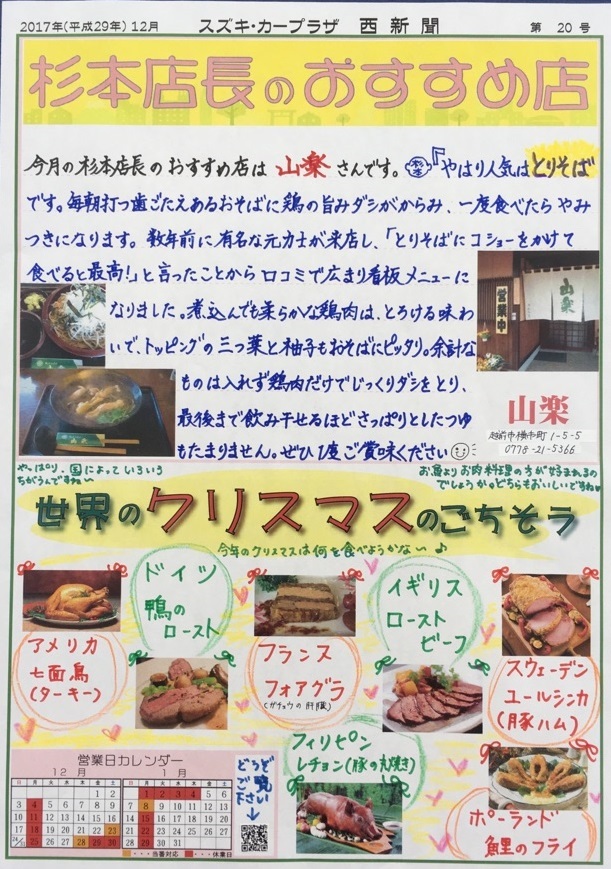 2017年(平成29年) 12月
スズキ・カープラザ 西新聞
第 20 号
杉本店長のおすすめ店
今月の杉本店長のおすすめ店は 山楽 さんです。 『やはり人気はとりそば
です。毎朝打つ歯ごたえあるおそばに鶏の旨みダシがからみ、一度食べたら やみ
つきになります。数年前に有名な元力士が来店し、「とりそばにコショーをかけて
食べると最高!」と言ったことから口コミで広まり看板メニューに
なりました。煮込んでも柔らかな鶏肉は、とろける味わ
いで、トッピングの三つ葉と柚子もおそばにピッタリ。余計な
ものは入れず鶏肉だけでじっくりダシをとり、
最後まで飲み干せるほどさっぱりとしたつゆ
もたまりません。ぜひ1度ご賞味ください
山楽
営業中
山楽
越前市横市町 1-5-5
0778-21-5366
やっぱり、国によっていろいろ
ちがうんですね〜
お魚よりお肉料理の方が好まれるの
でしょうか。どちらもおいしいですね
世界のクリスマスのごちそう
今年のクリスマスは何を食べようかな〜♪
アメリカ
七面鳥
(ターキー)
ドイツ
鴨の
ロースト
フランス
フォアグラ
(ガチョウの肝臓)
イギリス
ロースト
ビーフ
スウェーデン
ユールシンカ
(豚ハム)
フィリピン
レチョン(豚の丸焼き)
ポーランド
鯉のフライ
営業日カレンダー
12月 1月
日 月 火 水 木 金 土 日 月 火 水 木 金 土
1 2 1 2 3 4 5 6
3 4 5 6 7 8 9 7 8 9 10 11 12 13
10 11 12 13 14 15 16 14 15 16 17 18 19 20
17 18 19 20 21 22 23 21 22 23 24 25 26 27
24/31 25 26 27 28 29 30 28 29 30 31
・・・当番対応 ・・・休業日
どうぞ
ご覧い
下さい